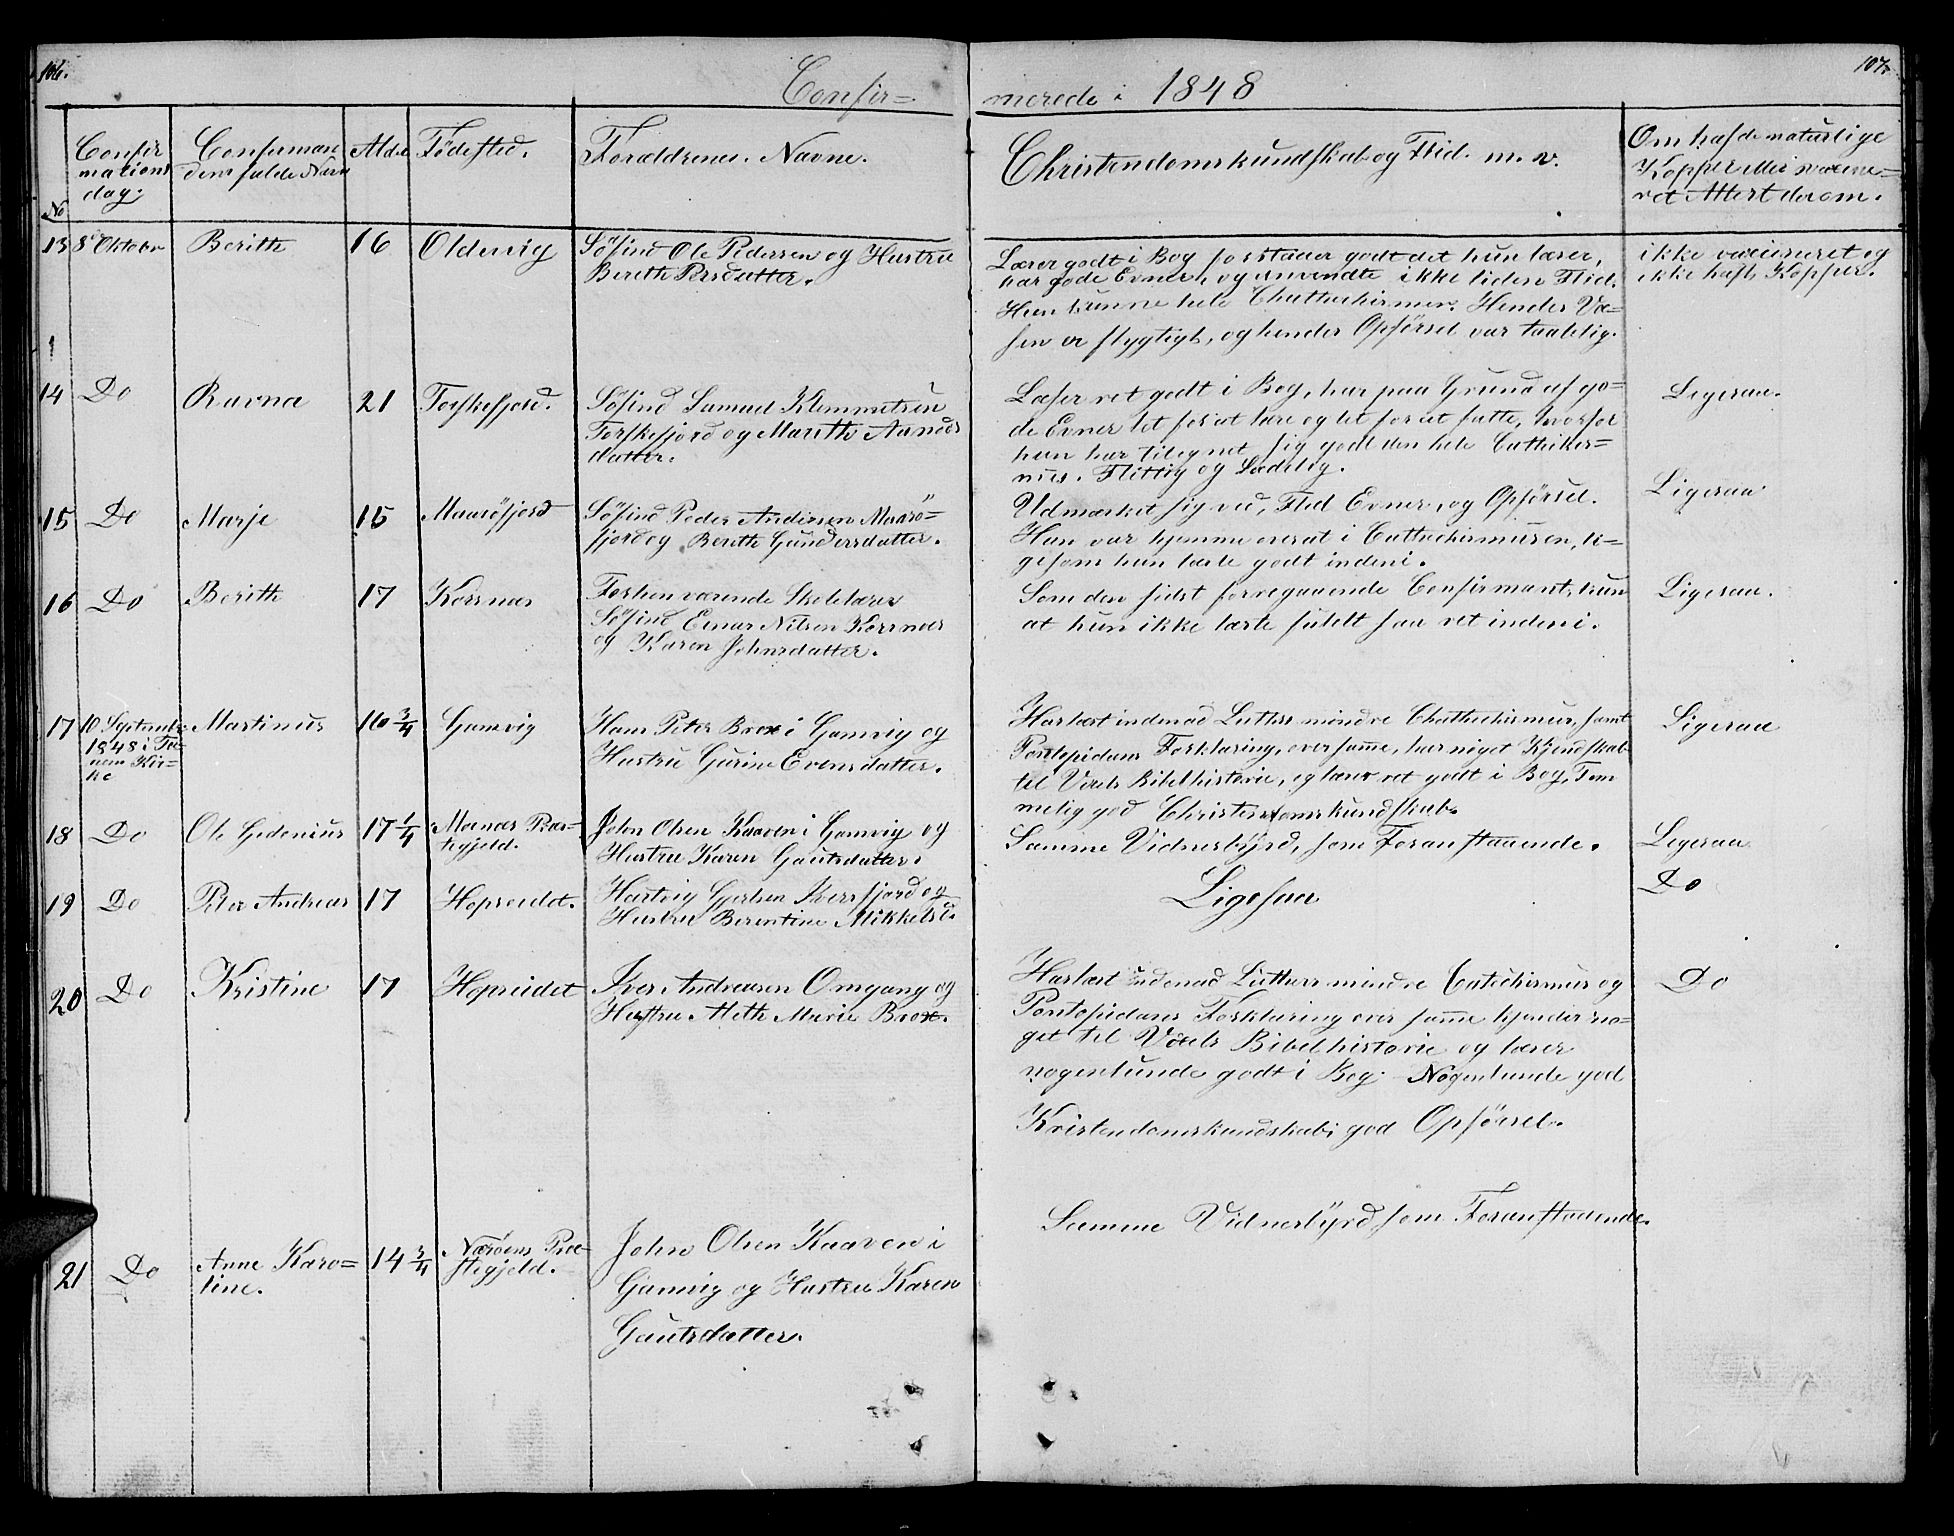 106.
107.
Confir=
merede i 1848
No
Confir
mations
dag.
Confirman
dens fulde Navn
Alder
Fødested.
Forældrenes Navne.
Christendomskundskab og Flid. m. v.
Om hafde naturlige
Kopper eller vaccine=
ret Attest derom.
13
8de Oktober
Berith
16
Oldevig
Söfind Ole Pedersen og Hustru
Berith Persdatter.
Læser godt i Bog forstaaer godt det hun læser,
har gode Evner, og anvendte ikke liden Flid.
Hun kunne hele Chattechismen. Hendes Væ=
sen er flygtigt, og hendes Opførsel var taalelig.
ikke vaccineret og
ikke haft Kopper.
14
Do
Ravna
21
Torskefjord.
Söfind Samuel Klemmetsen
Torskefjord og Marith Aamods
datter.
Læser ret godt i Bog, har paa Grund af go=
de Evner let for at lære og let for at fatte, hvorfor
hun har tilegnet sig godt den hele Cathekis=
mus. Flittig og Sædelig.
Ligesaa.
15
Do
Marje
15
Maasöfjord
Söfind Peder Andersen Maasö=
fjord og Berith Gundersdatter.
Udmærket sig ved, Flid Evner, og Opførsel.
Hun var hjemme overalt i Cattechismusen, li=
gesom hun læste godt indeni.
Ligesaa
16
Do
Berith
17
Korsnæs
Forhenværende Skolelærer
Söfind Einar Nilsen Korsnæs
og Karen Johnsdatter.
Som den sidst forregaaende Confirmant, kun
at hun ikke læste fuldt saa ret indeni.
Ligesaa.
17
10 Septembr
1848 i Ta=
nens Kir=
ke
Martinus
16 3/4
Gamvig
Hans Peter Brox i Gamvig og
Hustru Gurine Evensdatter.
Har læst indenad Luthers mindre Chattechismus, samt
Pontopidans Forklaring, over samme, har noget Kjendskab
til Vogts Bibelhistorie, og læser ret godt i Bog, Tem
melig god Christendomskundskab.
Ligesaa
18
Do
Ole Gedenius
17 1/4
Præ=
stegjeld.
John Olsen Kaaven i Gamvig og
Hustru Karen Gautsdatter.
Samme Vidnesbyrd, som Foranstaaende.
Ligesaa
19
Do
Peter Andreas
17
Hopseidet.
Hartvig Iversfjord og
Hustru Berentine Mikkelsd.
Ligesaa
Do
20
Do
Kristine
17
Hopseidet
Iver Andreasen Omgang og
Hustru Meth Marie Brox.
Har læst indenad Luthers mindre Catechismus og
Pontopidans Forklaring over samme kjender no=
get til Vogts Bibelhistorie og læser
nogenlunde godt i Bog. Nogenlunde god
Kristendomskundskab; god Opförsel.
Do
21
Do
Anne Karo=
line.
14 3/4
Nærøens Præ=
stegjeld.
John Olsen Kaaven i
Gamvig og Hustru Karen
Gautsdatter.
Samme Vidnesbyrd, som Foranstaaende.